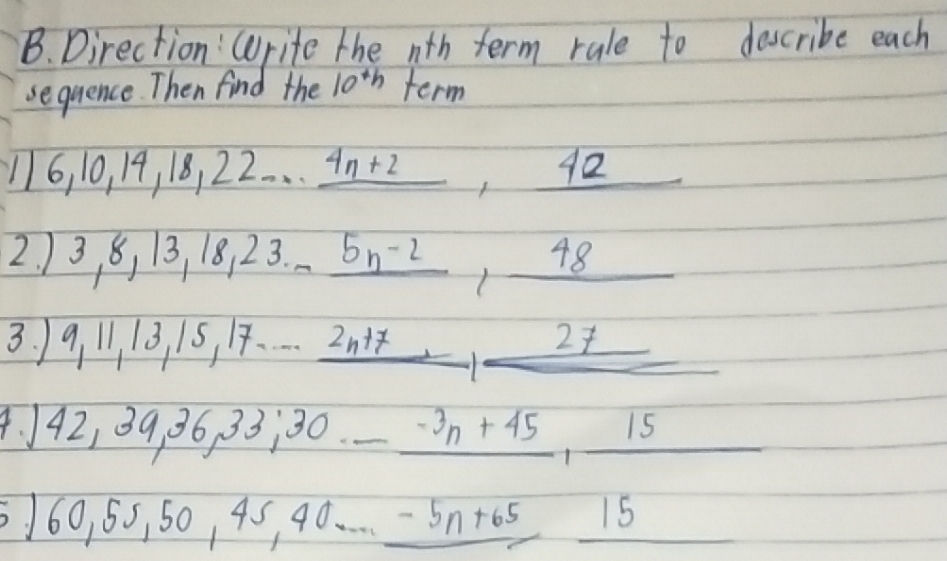 B. Direction: Write the nth term rule to describe each
sequence. Then find the 10th term
1) 6, 10, 14, 18, 22.... 4n+2, 42
2.) 3, 8, 13, 18, 23... 5n-2, 48
3.) 9, 11, 13, 15, 17.... 2n+7, 27
4.) 42, 39, 36, 33, 30... -3n + 45, 15
5.) 60, 55, 50, 45, 40.... -5n+65 15